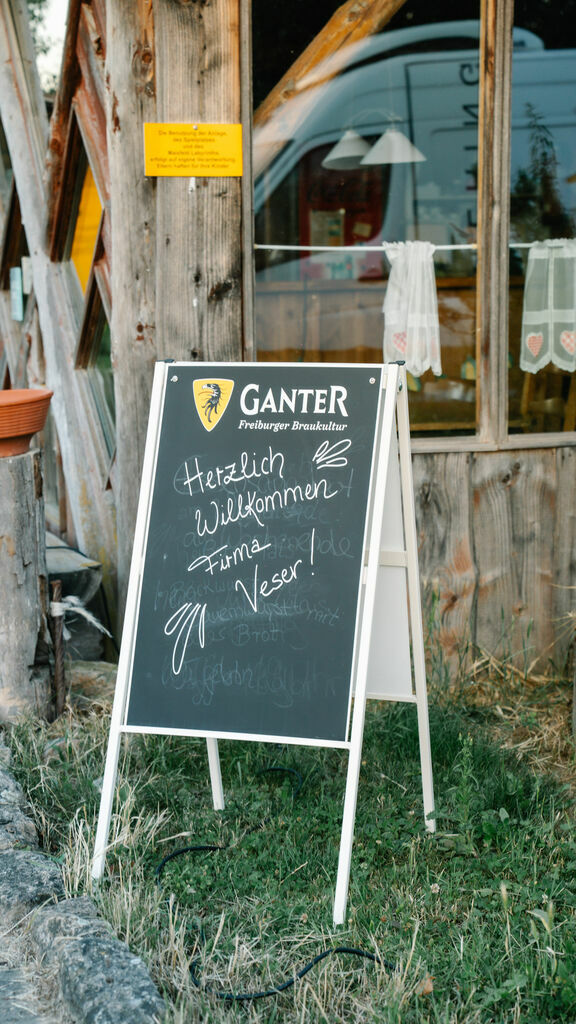 Die Benutzung der Anlage,
des Spielplatzes
und des
Maisfeld Labyrinths
erfolgt auf eigene Verantwortung
Eltern haften für ihre Kinder
GANTER
Freiburger Braukultur
Herzlich
Willkommen
Firma
Veser!